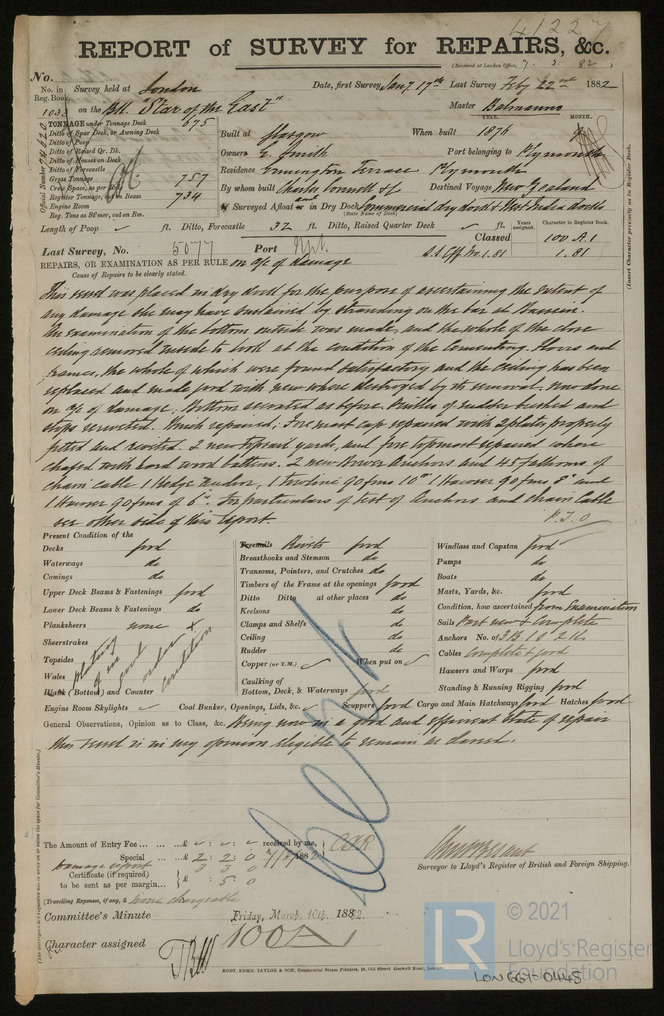 41227
REPORT of SURVEY for REPAIRS, &c.
(Received at London Office, 7. 3 82)
No.
No. in Reg. Book. Survey held at London Date, first Survey Jany 17th Last Survey Feby 22nd 1882
103 on the Bk "Star of the East" Master
TONNAGE under Tonnage Deck 675
Ditto of Spar Deck, or Awning Deck
Ditto of Poop
Ditto of Raised Qr. Dk.
Ditto of House on Deck
Ditto of Forecastle
Gross Tonnage 757
Crew Space, as per
Register Tonnage, on Beam 734
Engine Room
Reg. Tons as St'mer, cut on Bm.
Official Number
YEAR. MONTH.
Built at Glasgow When built 1876 9
Owners E. Smith Port belonging to Plymouth
Residence Terrace Plymouth
By whom built Charles Connell & Co Destined Voyage New Zealand
If Surveyed Afloat and in Dry Dock Commercial dry dock & West India docks
(State Name of Dock)
Length of Poop ft. Ditto, Forecastle 32 ft. Ditto, Raised Quarter Deck ft. Years assigned. Character in Register Book.
(Insert Character precisely as in Register Book.
Last Survey, No. 5677 Port Classed 100 A.1
1.81
REPAIRS, OR EXAMINATION AS PER RULE, on a/c of damage
Cause of Repairs to be clearly stated.
This vessel was placed in dry dock for the purpose of ascertaining the extent of
any damage she may have sustained by stranding on the bar at Bassein.
An examination of the bottom outside was made, and the whole of the close
ceiling removed inside to look at the condition of the Cementing. Floors and
frames, the whole of which were found satisfactory and the ceiling has been
replaced and made good with new where destroyed by its removal. Now done
on a/c of damage. Bottom cemented as before. Pintles of rudder bushed and
straps reriveted. Winch repaired. Fore mast cap repaired with 2 plates properly
fitted and riveted. 2 new topsail yards, and fore topmast repaired where
chafed with hard wood battens. 2 new Bower Anchors and 45 fathoms of
chain cable 1 Kedge Anchor, 1 towline 90 fms 10" 1 Hawser 90 fms 8" and
1 Hawser 90 fms of 6". For particulars of test of Anchors and chain Cable
see other side of this report.
P.T.O
Present Condition of the
Decks good
Waterways do
Comings do
Upper Deck Beams & Fastenings good
Lower Deck Beams & Fastenings do
Planksheers none
Sheerstrakes
Topsides
Wales
Blank (Bottom) and Counter
plating in good order & condition
Treenails Rivets good
Breasthooks and Stemson do
Transoms, Pointers, and Crutches do
Timbers of the Frame at the openings good
Ditto Ditto at other places do
Keelsons do
Clamps and Shelfs do
Ceiling do
Rudder do
Copper (or Y.M.) When put on
Caulking of
Bottom, Deck, & Waterways good
Windlass and Capstan good
Pumps do
Boats do
Masts, Yards, &c. good
Condition, how ascertained from Examination
Sails Part new & Complete
Anchors No. of 3B. 1S 2K
Cables Complete & good
Hawsers and Warps good
Standing & Running Rigging good
Engine Room Skylights Coal Bunker, Openings, Lids, &c. Scuppers good Cargo and Main Hatchways good Hatches good
General Observations, Opinion as to Class, &c. Being now in a good and efficient state of repair
this vessel is in my opinion eligible to remain as classed.
The Amount of Entry Fee ... £ : : received by me,
Special ... £ 2 : 2 : 0 1882
Damage report 3 3 0
Certificate (if required) to be sent as per margin... £ : 5 : 0
(Travelling Expenses, if any, £ none chargeable
Surveyor to Lloyd's Register of British and Foreign Shipping.
Committee's Minute Friday, March 10th, 1882.
Character assigned 100A1
ROBT. EDMD. TAYLOR & SON, Commercial Steam Printers, 19, Old Street Goswell Road, London.
LR © 2021
Lloyd's Register
Foundation
LON 661-0445